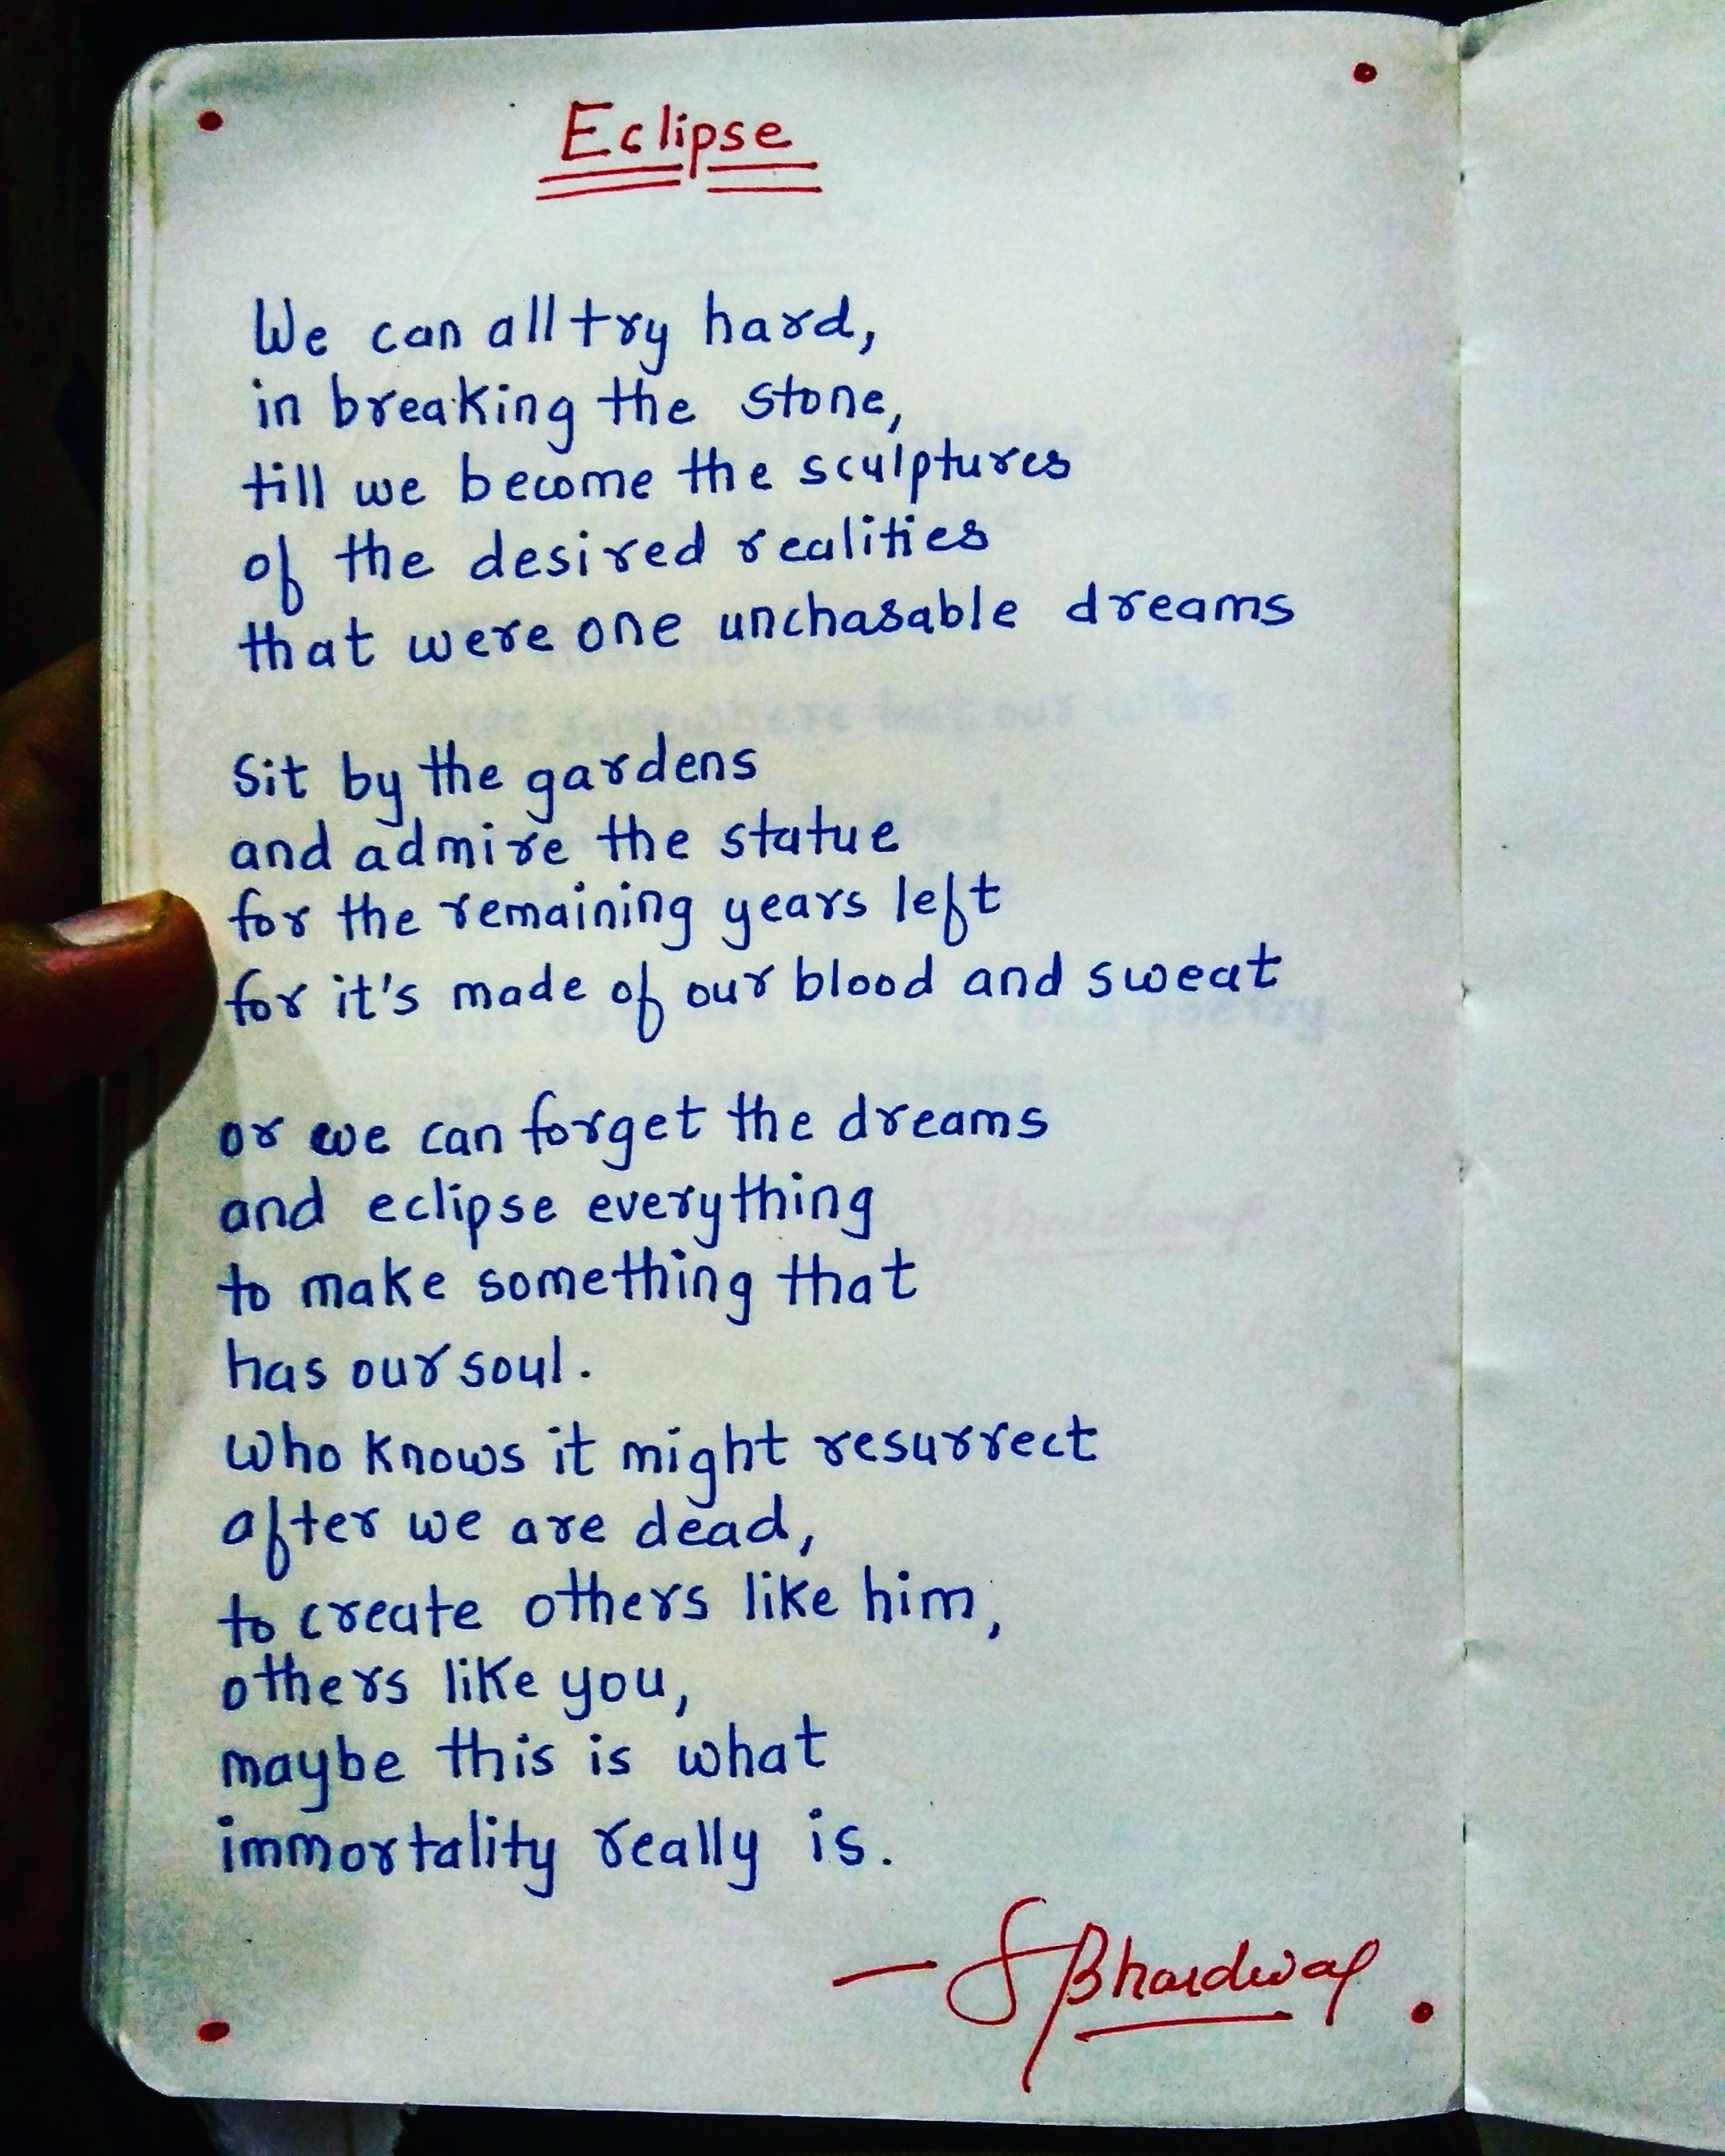 Eclipse
We can all try hard,
in breaking the stone,
till we become the sculptures
of the desired realities
that were one unchasable dreams
Sit by the gardens
and admire the statue
for the remaining years left
for it's made of our blood and sweat
or we can forget the dreams
and eclipse everything
to make something that
has our soul.
Who knows it might resurrect
after we are dead,
to create others like him,
others like you,
maybe this is what
immortality really is.
— S Bhardwaj